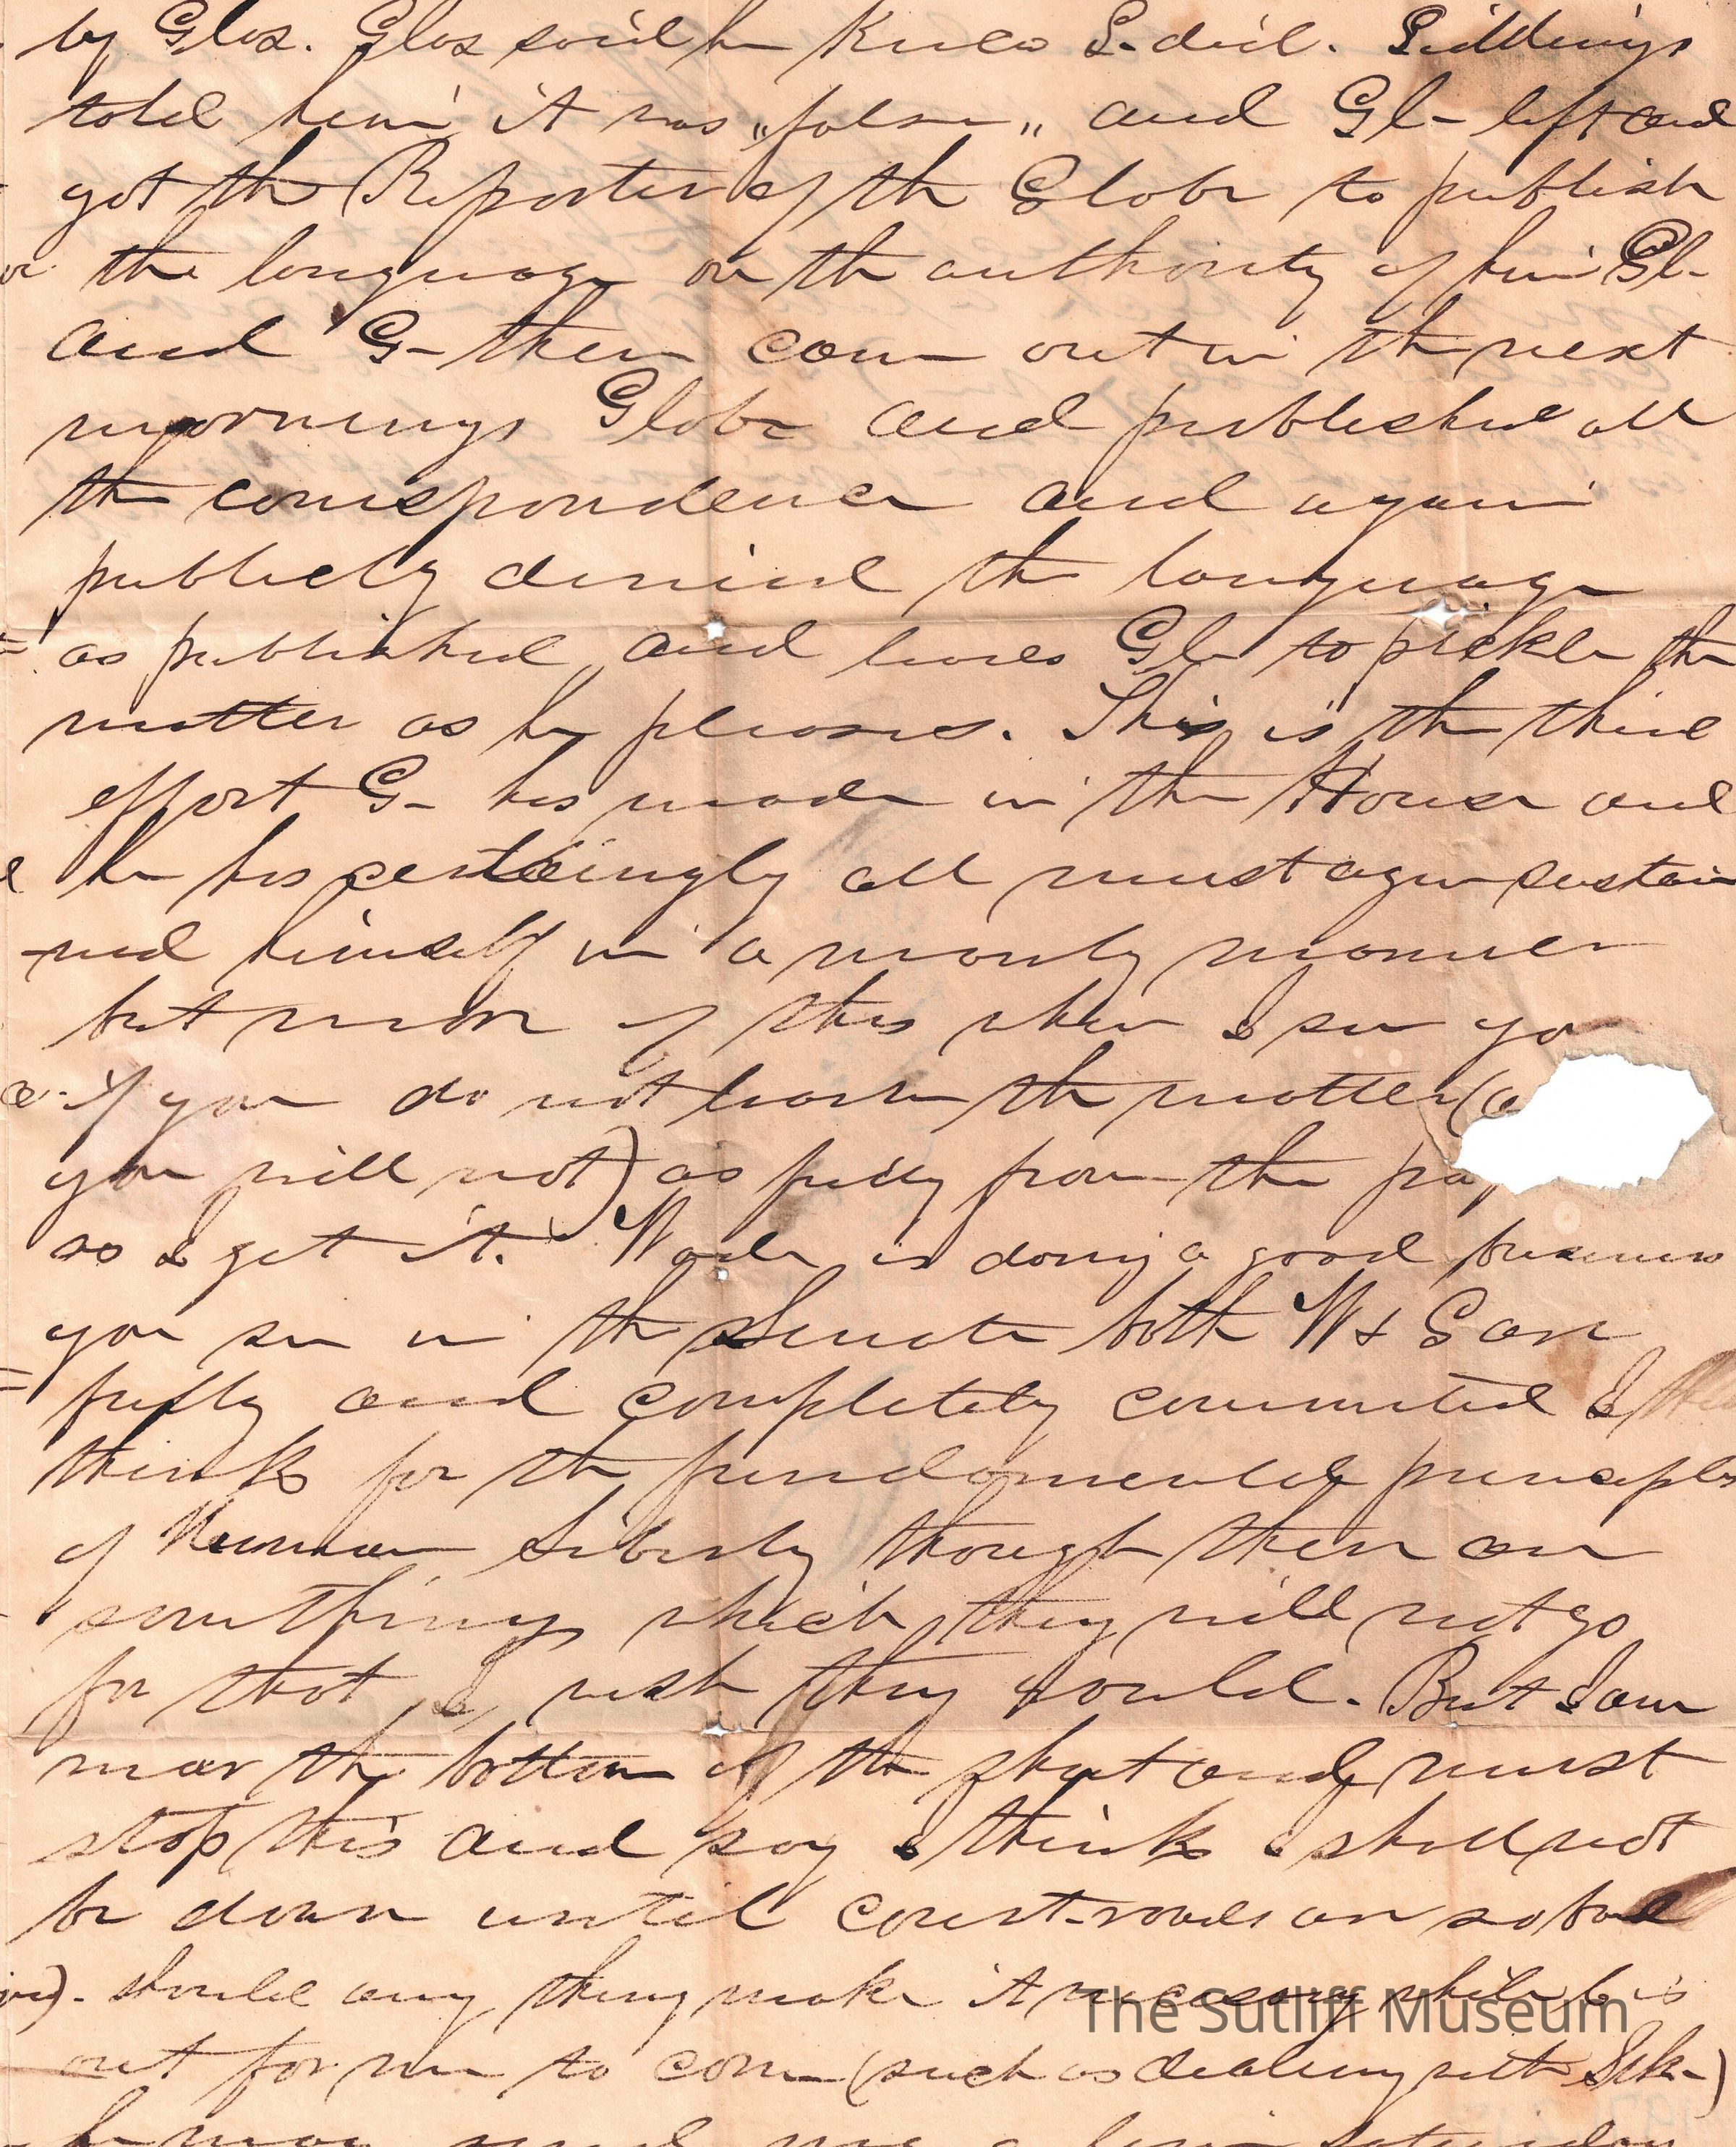 by Glos. Glos said he knew G. did. Giddings
told him it was "false" and Gl- left and
got the Reporter of the Globe to publish
the language on the authority of him Gl-
and G- then came out in the next
mornings Globe and published all
the correspondence and again
publicly denied the language
as published, and leaves Gl- to pickle the
matter as he pleases. This is the third
effort G- has made in the House and
he has all must again sustai
ned himself in a manly manner
but more of this when I see yo
if you do not learn the matter (a
you will not) as fully from the pap
so I get it. Wade is doing a good business
you see in the Senate both W & G are
fully and completely committed I
think for the fundamental principles
of Human Liberty though there are
somethings which they will not go
for that I, wish they would. But I am
near the bottom of the sheet and must
stop this and say I think I shall not
be down until court-roads are so bad
should any thing make it necessary while C is
out for me to come (such as dealing with
may send me a line saturday
The Sutliff Museum